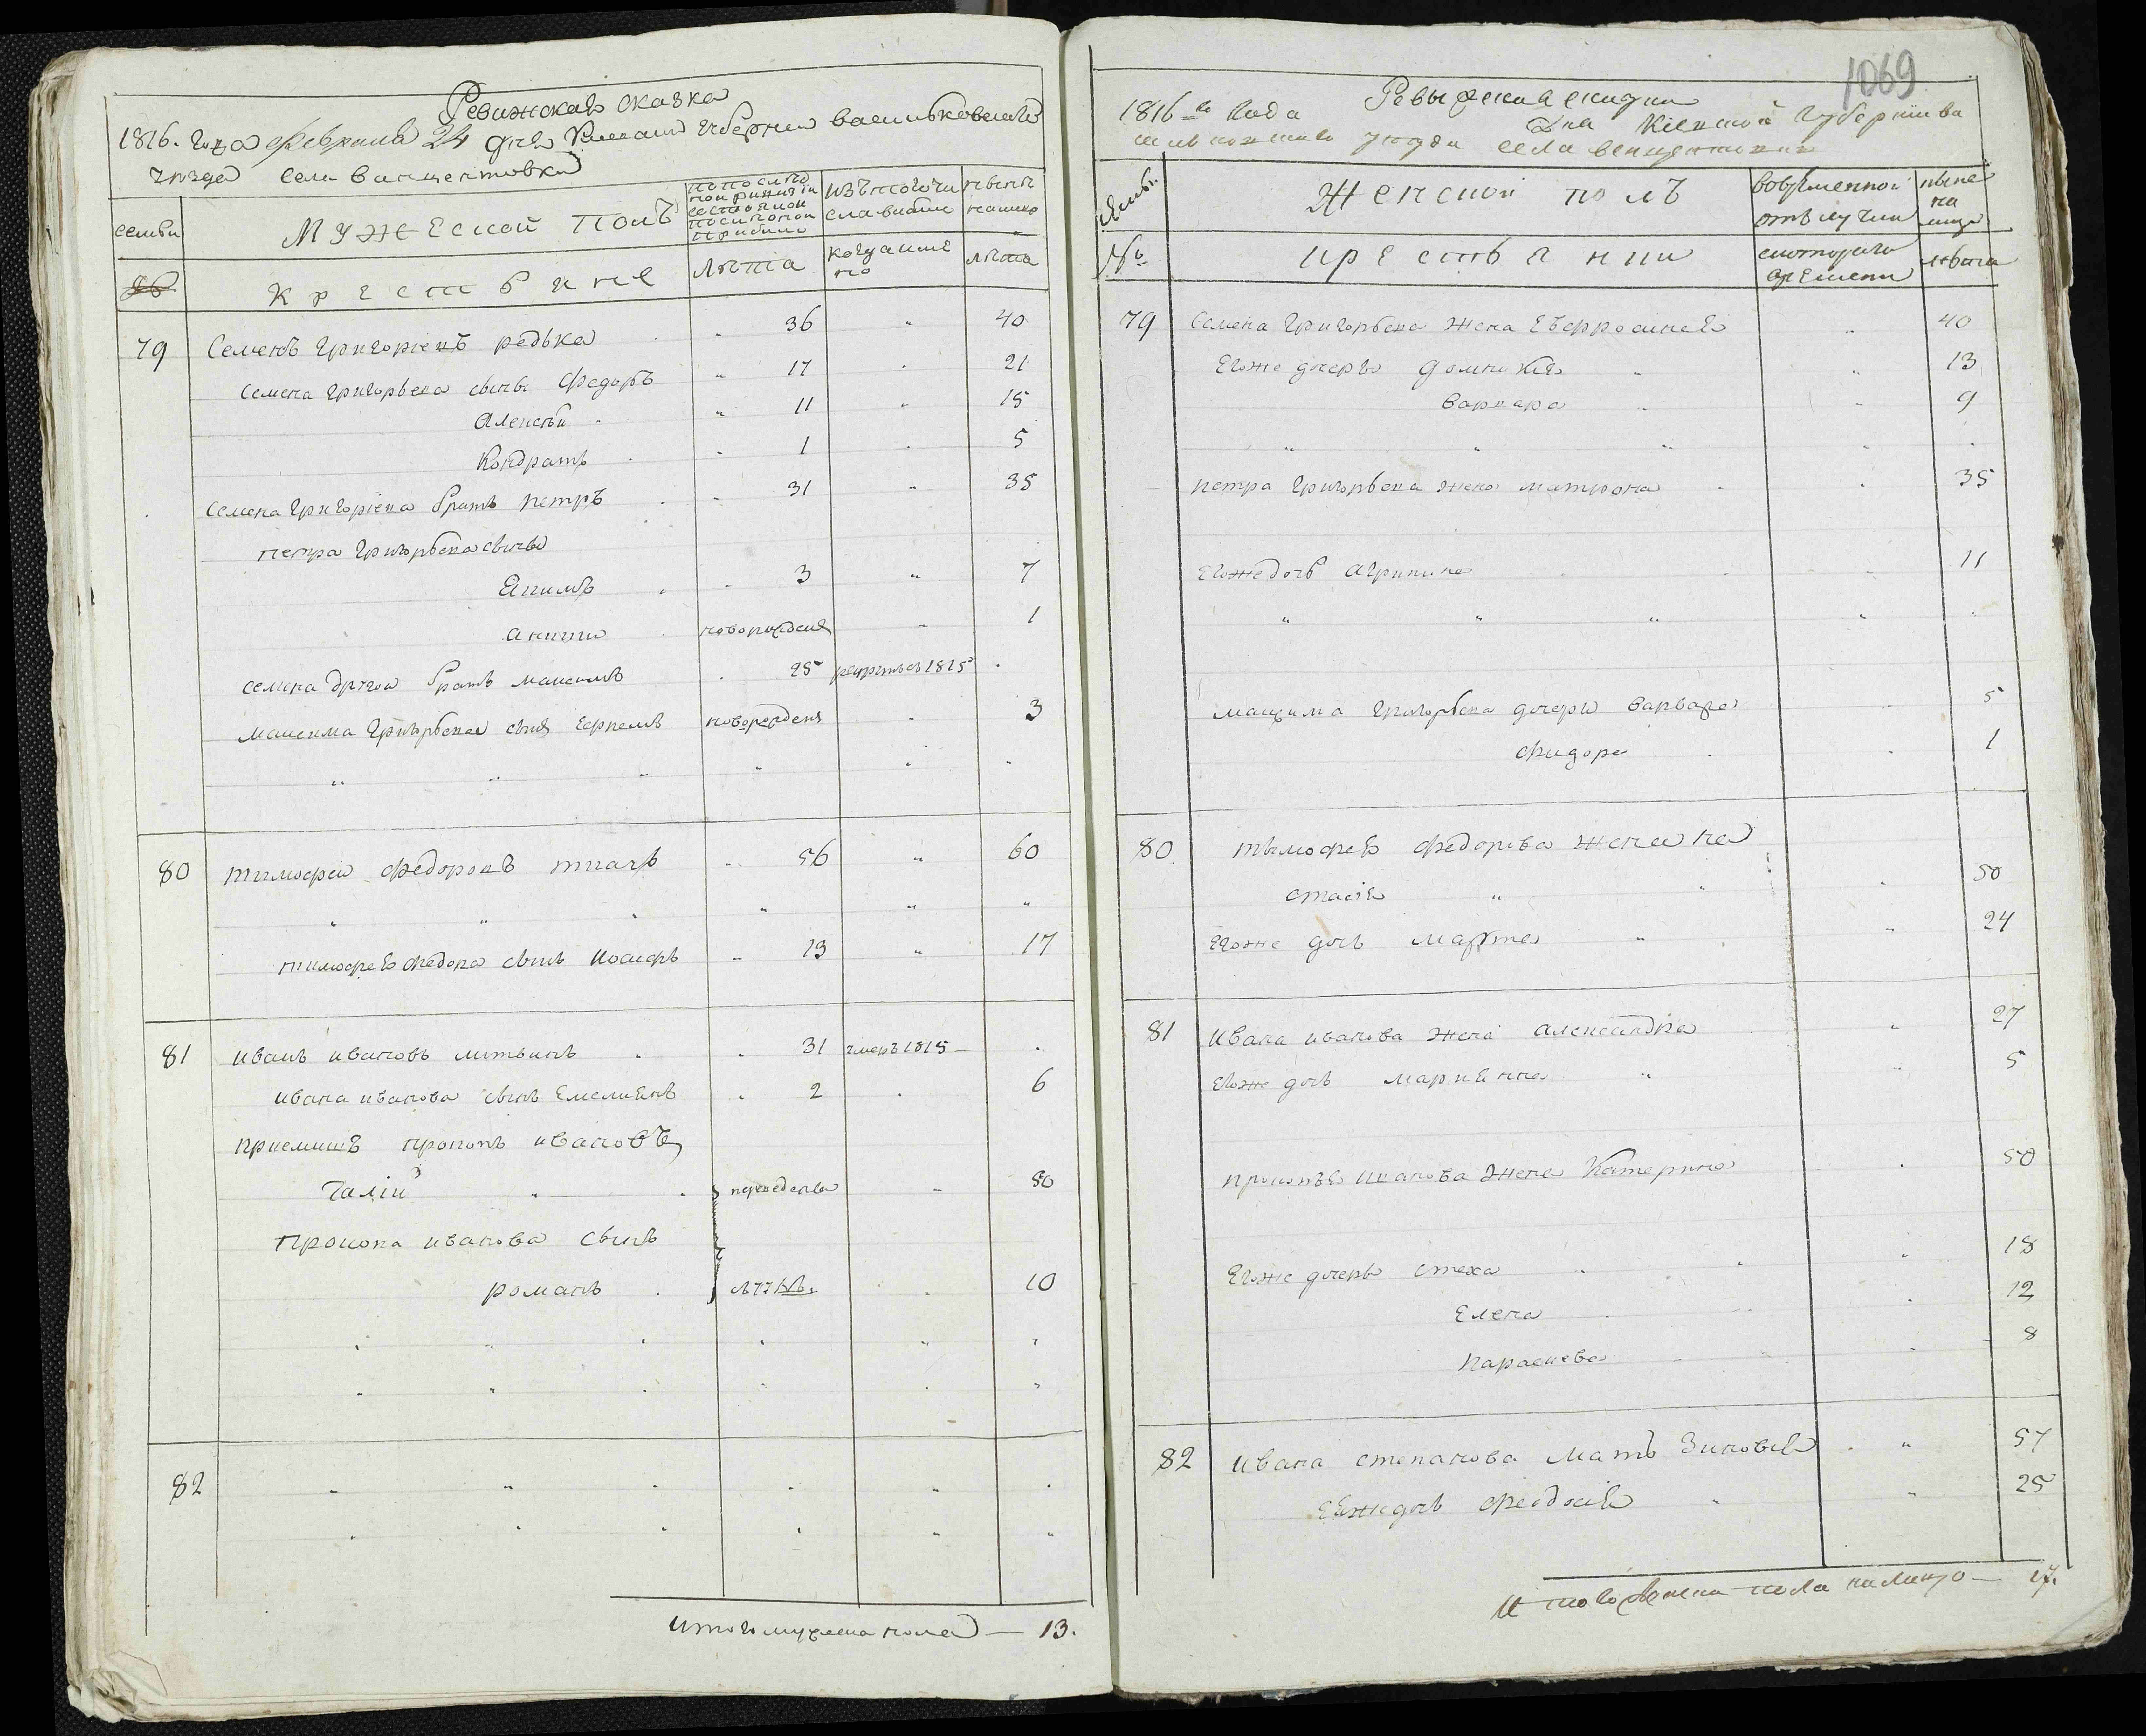 Ревижская сказка
1816. года февраля 24 дня Киевской губернии васильковскаго
уезда села Винцентовки
семьи
Мужеской полъ
по последней ревизии состояло и после оной прибыло
изъ того числа выбыло
ныне налицо
Крестьяне
лѣта
когда именно
лѣта
79 Семенъ Григоріевъ редька 36 " 40
Семена Григорьева сынъ Федоръ " 17 " 21
Алексѣй " 11 " 15
Кондратъ " 1 " 5
Семена Григоріева братъ петръ " 31 " 35
петра Григорьева сыны
Якимъ " 3 " 7
Аникии новорожденъ " 1
Семена другой братъ максимъ 25 рекрутъ съ 1815
максима Григорьева сынъ новорожденъ " 3
80 тимофеи федоровъ ткачъ " 56 " 60
тимофея федора сынъ иосифъ " 13 " 17
81 иванъ ивановъ литвинъ " 31 умеръ 1815 —
ивана иванова сынъ Емелиянъ " 2 " 6
приемишъ прокопъ ивановъ
Галій переведены 50
Прокопа иванова сынъ
романъ 10
82
итого мужеска пола — 13.
1069
Ревыжская скаска
1816 го Года Дня Кіевской Губерніи ва
сильковскаго уезда села венцентовки
семьи
Женской полъ
вовременной отлучки
ныне на лицо
№
крестьянки
с котораго времени
лѣта
79 Семена Григорьева жена 40
Егоже дочеръ домникія " 13
варвара " 9
петра Григорьева жена матрона 35
Егоже дочь Агрипина 11
максима Григорьева дочери варвара 5
Фидора 1
80 тымофея федорова жена на
стасія " 50
Егоже дочь марта " 24
81 Ивана иванова жена александра " 27
Егоже дочь мариянна " 5
прокопъя иванова жена Катерина 50
Егоже дочеры стеха " 18
Елена 12
параскева 8
82 ивана степанова мать Зиновія " 57
Еяже дочь феодосія " 25
Итого женска пола налицо — 17.